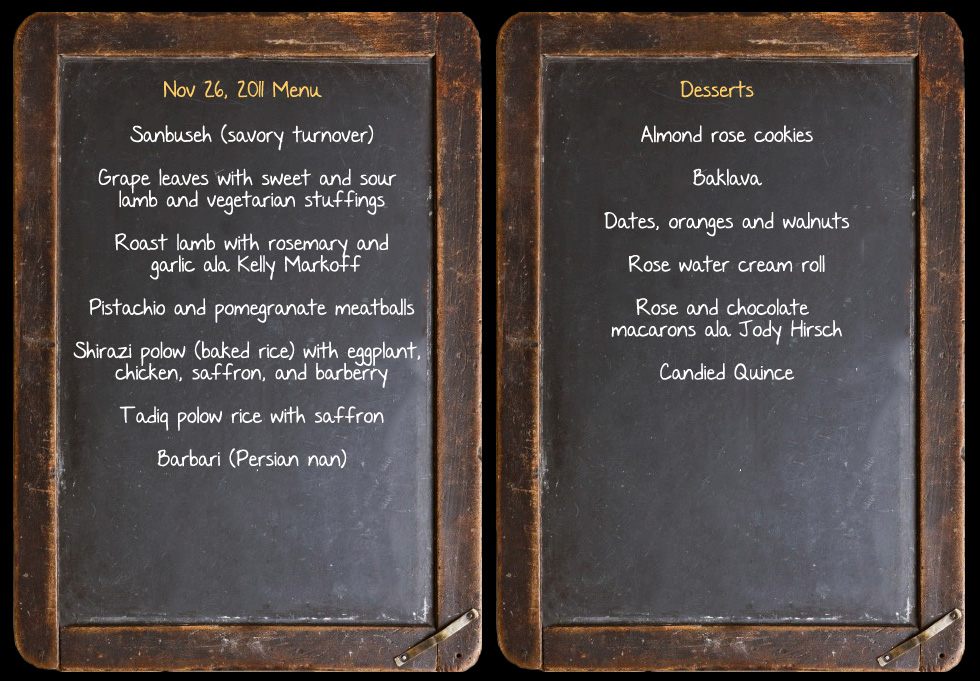 Nov 26, 2011 Menu
Sanbuseh (savory turnover)
Grape leaves with sweet and sour
lamb and vegetarian stuffings
Roast lamb with rosemary and
garlic ala Kelly Markoff
Pistachio and pomegranate meatballs
Shirazi polow (baked rice) with eggplant,
chicken, saffron, and barberry
Tadiq polow rice with saffron
Barbari (Persian nan)
Desserts
Almond rose cookies
Baklava
Dates, oranges and walnuts
Rose water cream roll
Rose and chocolate
macarons ala Jody Hirsch
Candied Quince